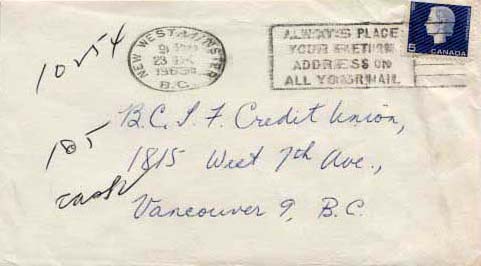 NEW WESTMINSTER
23
B.C.
ALWAYS PLACE
YOUR RETURN
ADDRESS ON
ALL YOUR MAIL
5
CANADA
10254
185
cash
B.C.T.F. Credit Union,
1815 West 7th Ave.,
Vancouver 9, B.C.